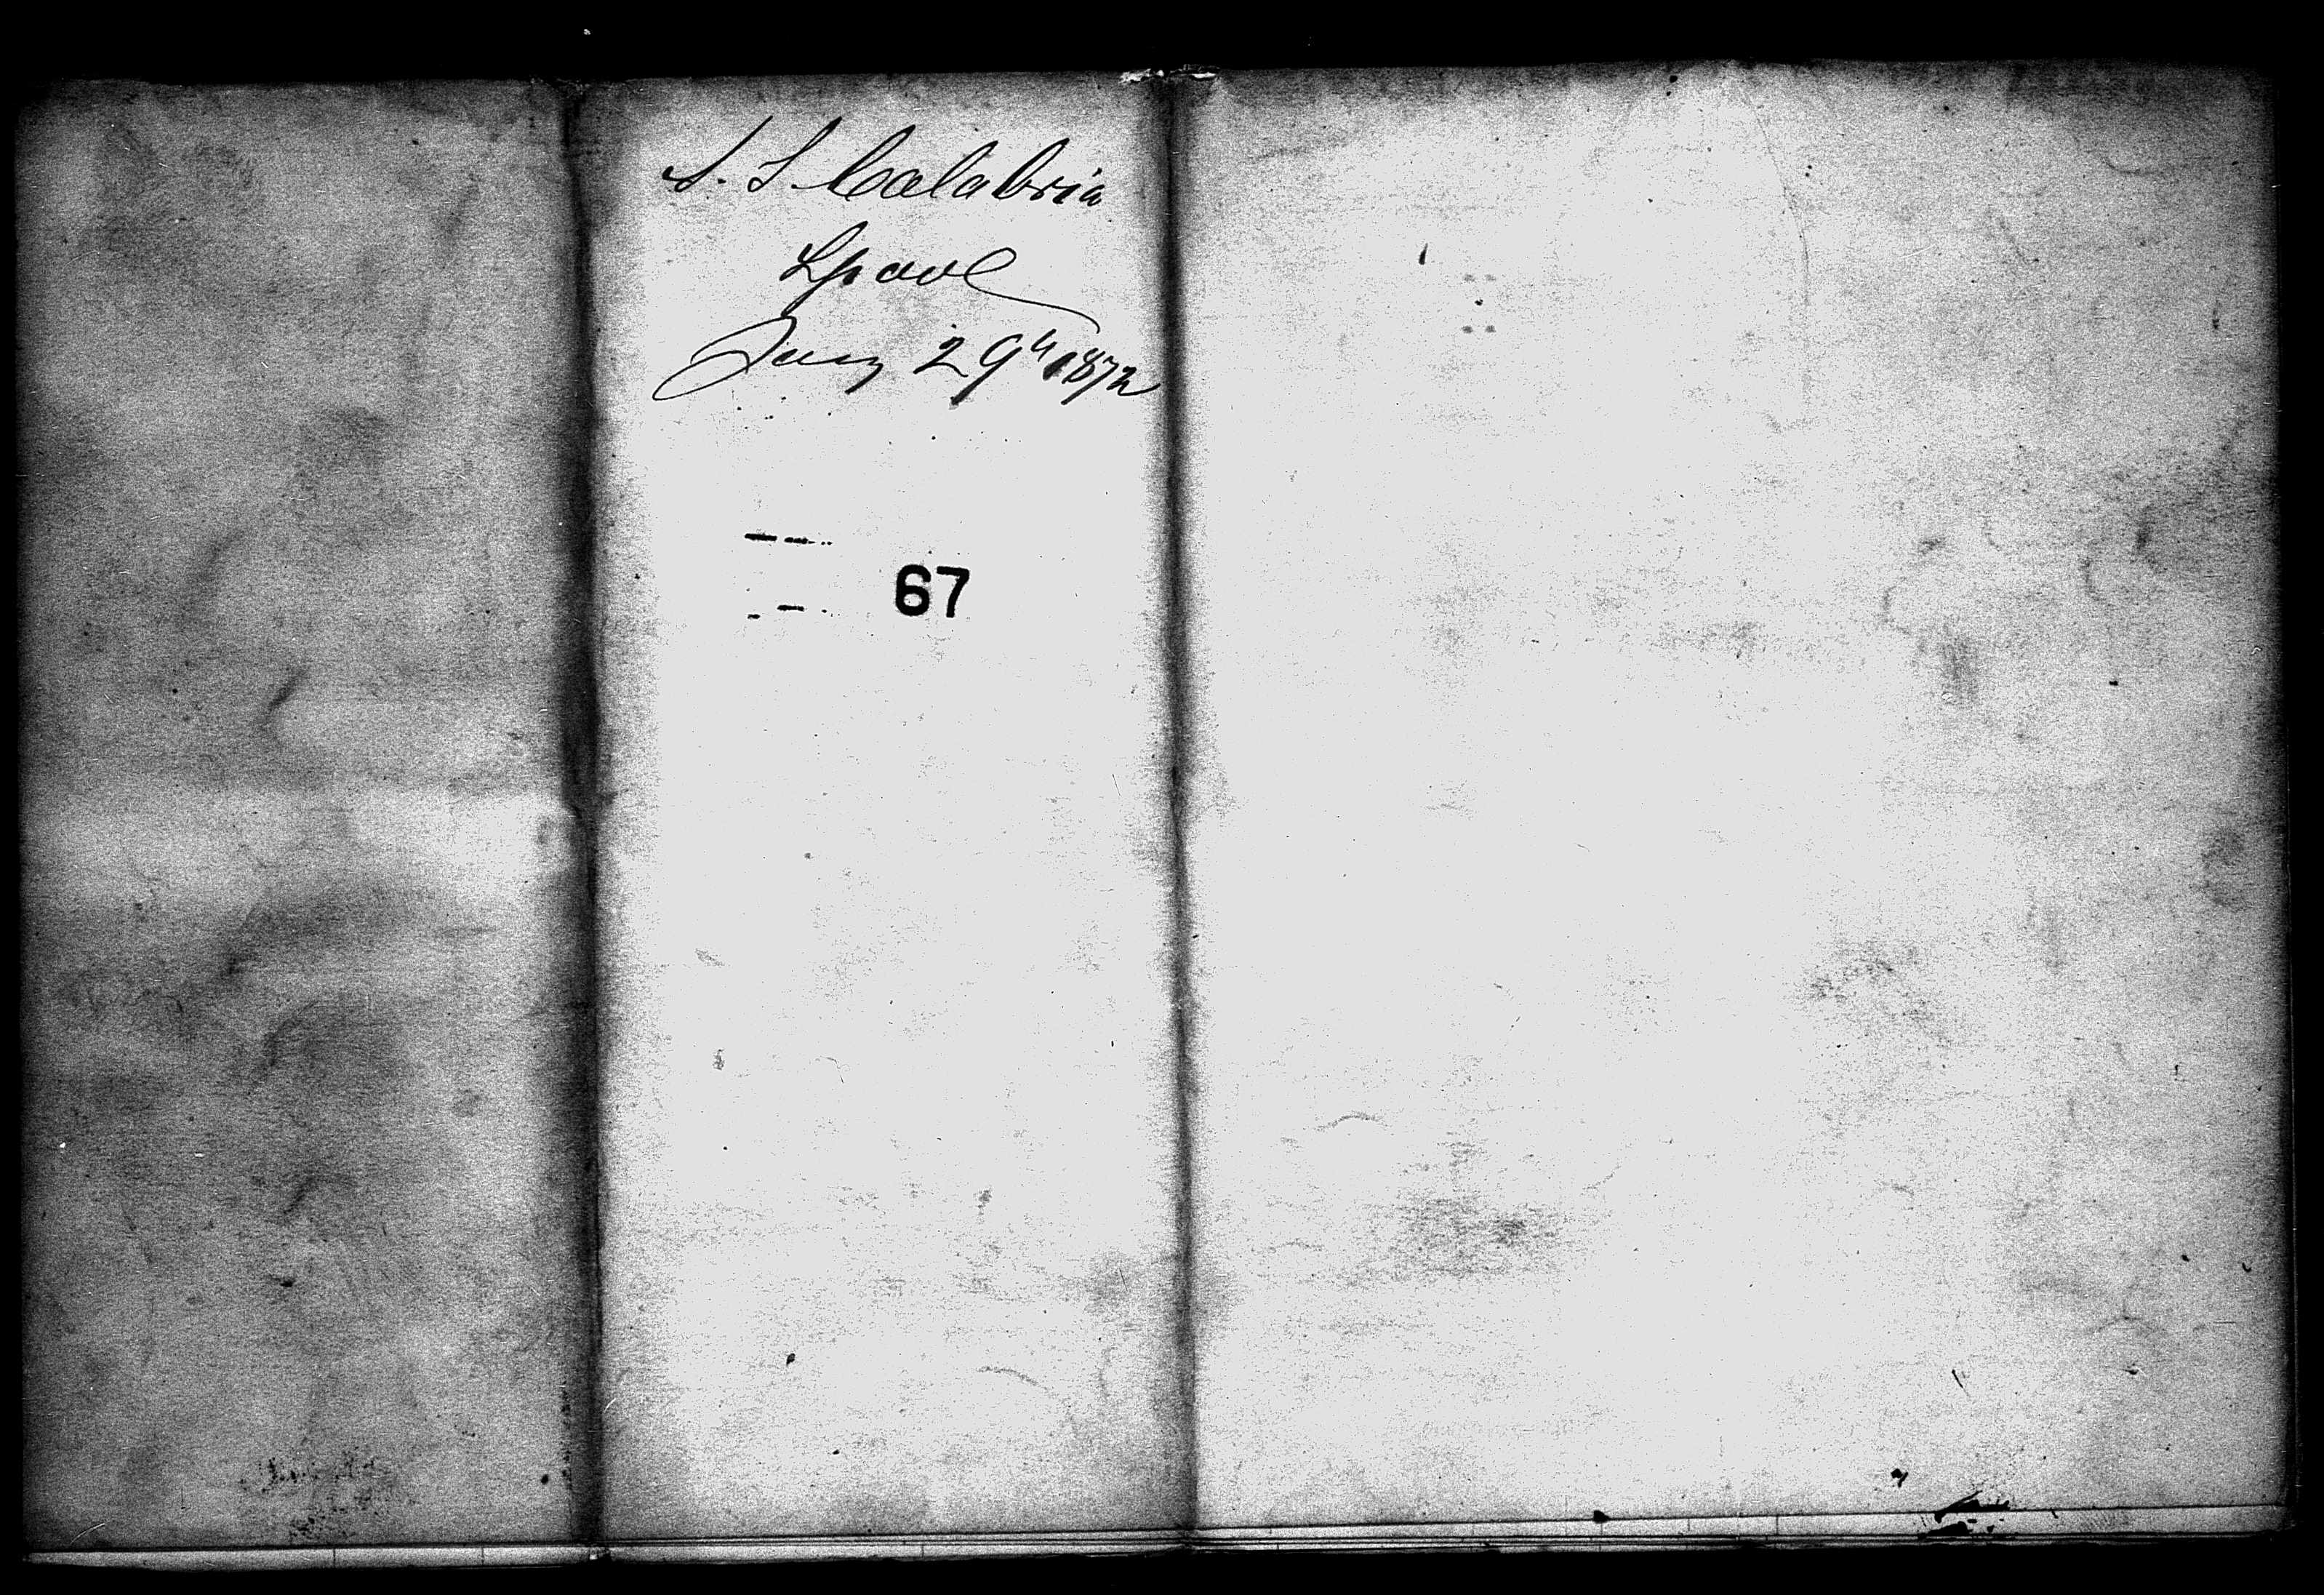 S. S. Calabria
Lpool
Jany 29th 1872
67